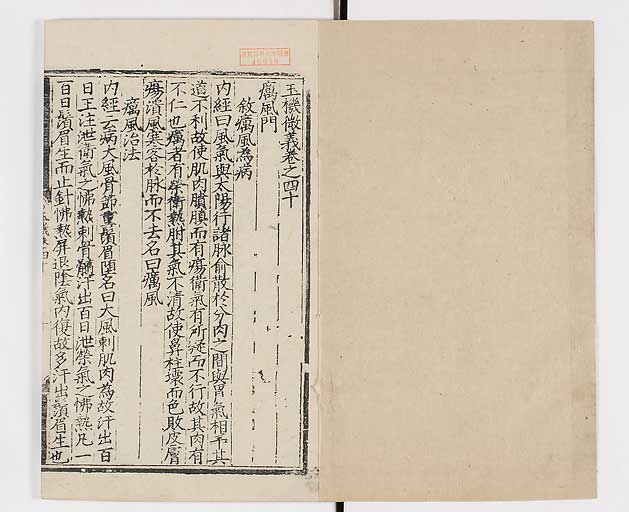 玉機微義卷之四十
癘風門
敘癘風為病
內經曰風氣與太陽行諸脉俞散於分肉之間與胃氣相干其
道不利故使肌肉䐜而有瘍衛氣有所凝而不行故其肉有
不仁也癘者有榮衛熱胕其氣不清故使鼻柱壞而色敗皮膚
瘍潰風寒客於脉而不去名曰癘風
癘風治法
內經云病大風骨節重鬚眉墮名曰大風刺肌肉為故汗出百
日王注泄衛氣之怫熱刺骨髓汗出百日泄榮氣之怫熱凡二
百日鬚眉生而止針怫熱屏退陰氣內復故多汗出鬚眉生也